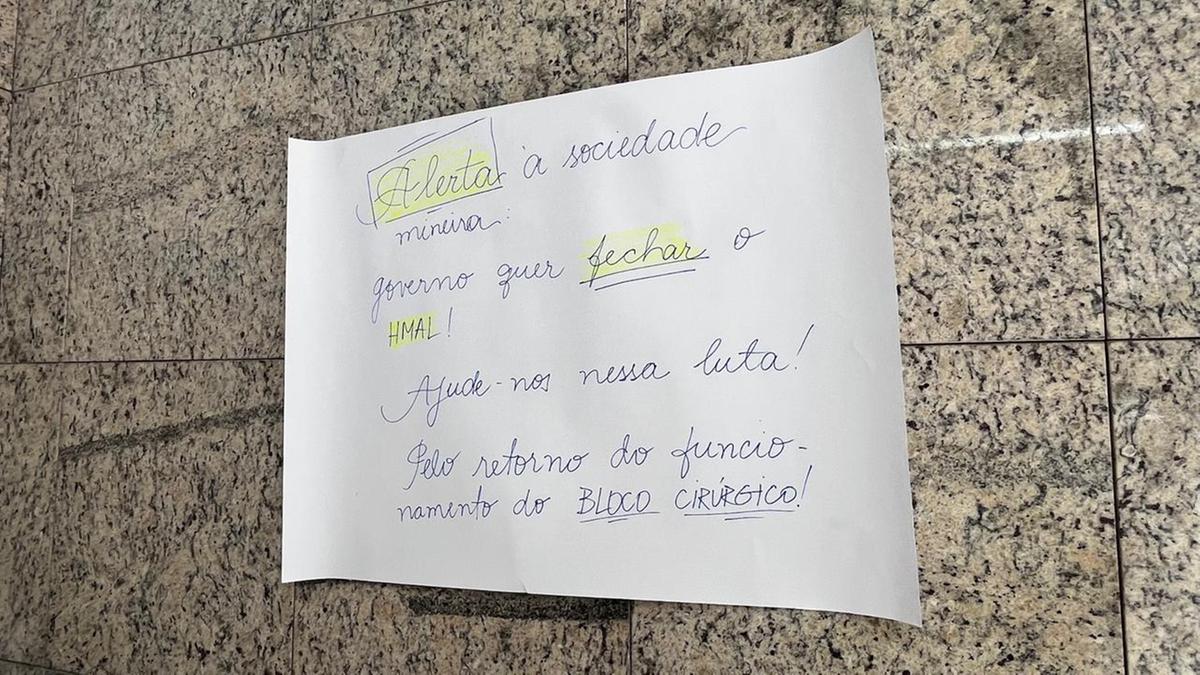 Alerta à sociedade
mineira:
governo quer fechar o
HMAL!
Ajude-nos nessa luta!
Pelo retorno do funcio-
namento do BLOCO CIRÚRGICO!